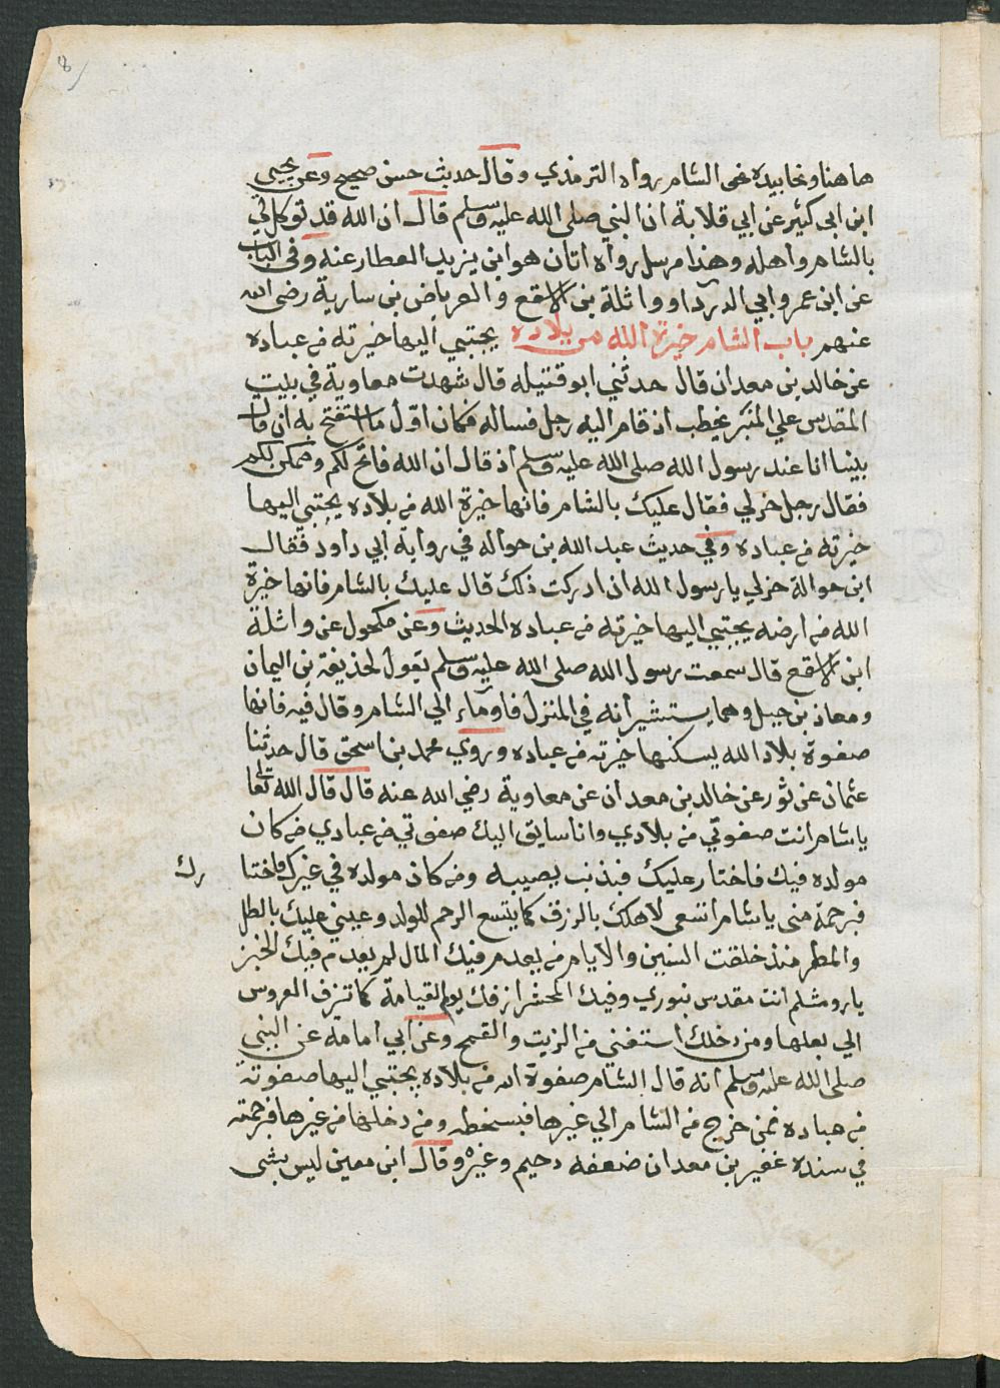 8
هاهنا ونحا بيده نحو الشام رواه الترمذي وقال حديث حسن صحيح وعن يحيى
ابن ابى كثير عن ابي قلابة ان النبي صلى الله عليه وسلم قال ان الله قد توكل لي
بالشام واهله وهذا مرسل رواه اتان هو ابن يزيد العطار عنه وفى الباب
عن ابن عمر وابي الدرداو واثلة بن الاسقع والعرباض بن سارية رضى الله
عنهم باب الشام خيرة الله من بلاده يجتبي اليها خيرته من عباده
عن خالد بن معدان قال حدثني ابو قتيله قال شهدت معاوية في بيت
المقدس علي المنبر يخطب اذ قام اليه رجل فساله فكان اول ما استفتح به ان قال
بينما انا عند رسول الله صلى الله عليه وسلم اذ قال ان الله فاتح لكم وممكن لكم
فقال رجل خر لي فقال عليك بالشام فانها خيرة الله من بلاده يجتبي اليها
خيرته من عباده وفي حديث عبد الله بن حواله في رواية ابي داود فقال
ابن حوالة خر لي يا رسول الله ان ادركت ذلك قال عليك بالشام فانها خيرة
الله من ارضه يجتبي اليها خيرته من عباده الحديث وعن مكحول عن واثلة
ابن الاسقع قال سمعت رسول الله صلى الله عليه وسلم يقول لحذيفة بن اليمان
ومعاذ بن جبل وهما يستشيرانه في المنزل فاوماء الي الشام وقال فيه فانها
صفوة بلاد الله يسكنها خيرته من عباده وروي محمد بن اسحق قال حدثنا
عثمان عن ثور عن خالد بن معدان عن معاوية رضي الله عنه قال قال الله تعالى
يا شام انت صفوتي من بلادي وانا سايق اليك صفوتي من عبادي من كان
مولده فيك فاختار عليك فبذنب يصيبه ومن كان مولده في غيرك فاختا
رك
فبرحمة مني يا شام اتسعى لاهلك بالرزق كما يتسع الرحم للولد وعيني عليك بالطل
والمطر منذ خلقت السنين والايام من يعدم فيك المال لم يعدم فيك الخبز
يا روشلم انت مقدس بنوري وفيك المحشر ازفك يوم القيامة كما تزف العروس
الي بعلها ومن دخلك استغنى من الزيت والقمح وعن ابي امامه عن النبى
صلى الله عليه وسلم انه قال الشام صفوة الله من بلاده يجتبي اليها صفوته
من عباده فمن خرج من الشام الي غيرها فبسخطه ومن دخلها من غيرها فبرحمته
في سنده عفير بن معدان ضعفه دحيم وغيره وقال ابن معين ليس بشى